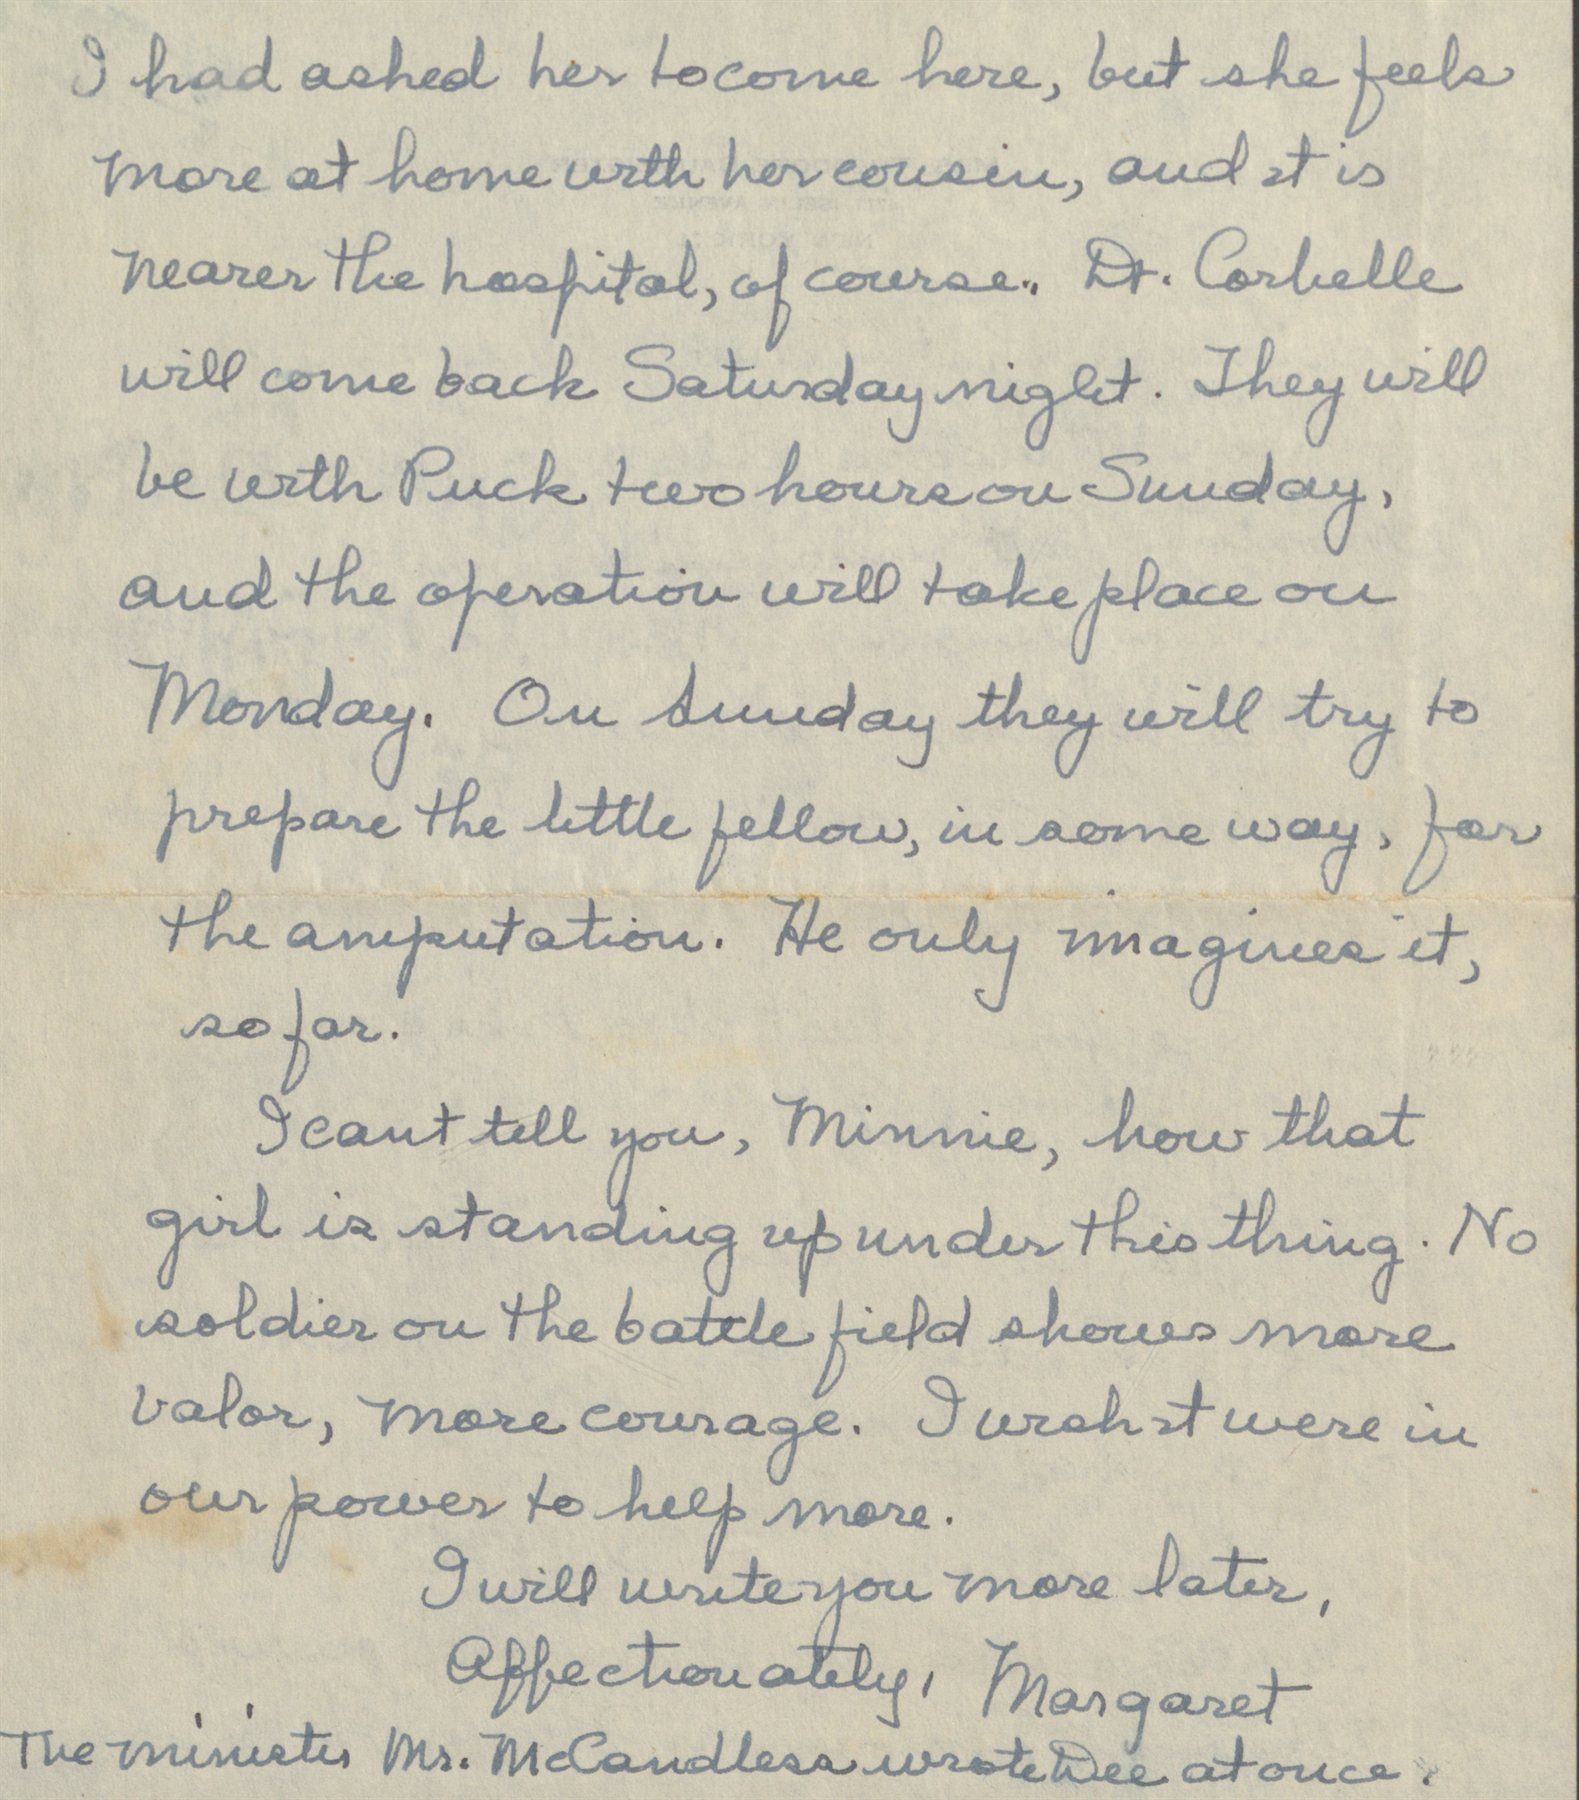 I had asked her to come here, but she feels
more at home with her cousin, and it is
nearer the hospital, of course. Dr. Corbelle
will come back Saturday night. They will
be with Puck two hours on Sunday,
and the operation will take place on
Monday. On Sunday they will try to
prepare the little fellow, in some way, for
the amputation. He only imagines it,
so far.
I cant tell you, Minnie, how that
girl is standing up under this thing. No
soldier on the battle field shows more
valor, more courage. I wish it were in
our power to help more.
I will write you more later,
Affectionately, Margaret
The minister Mr. McCandless wrote Dee at once.